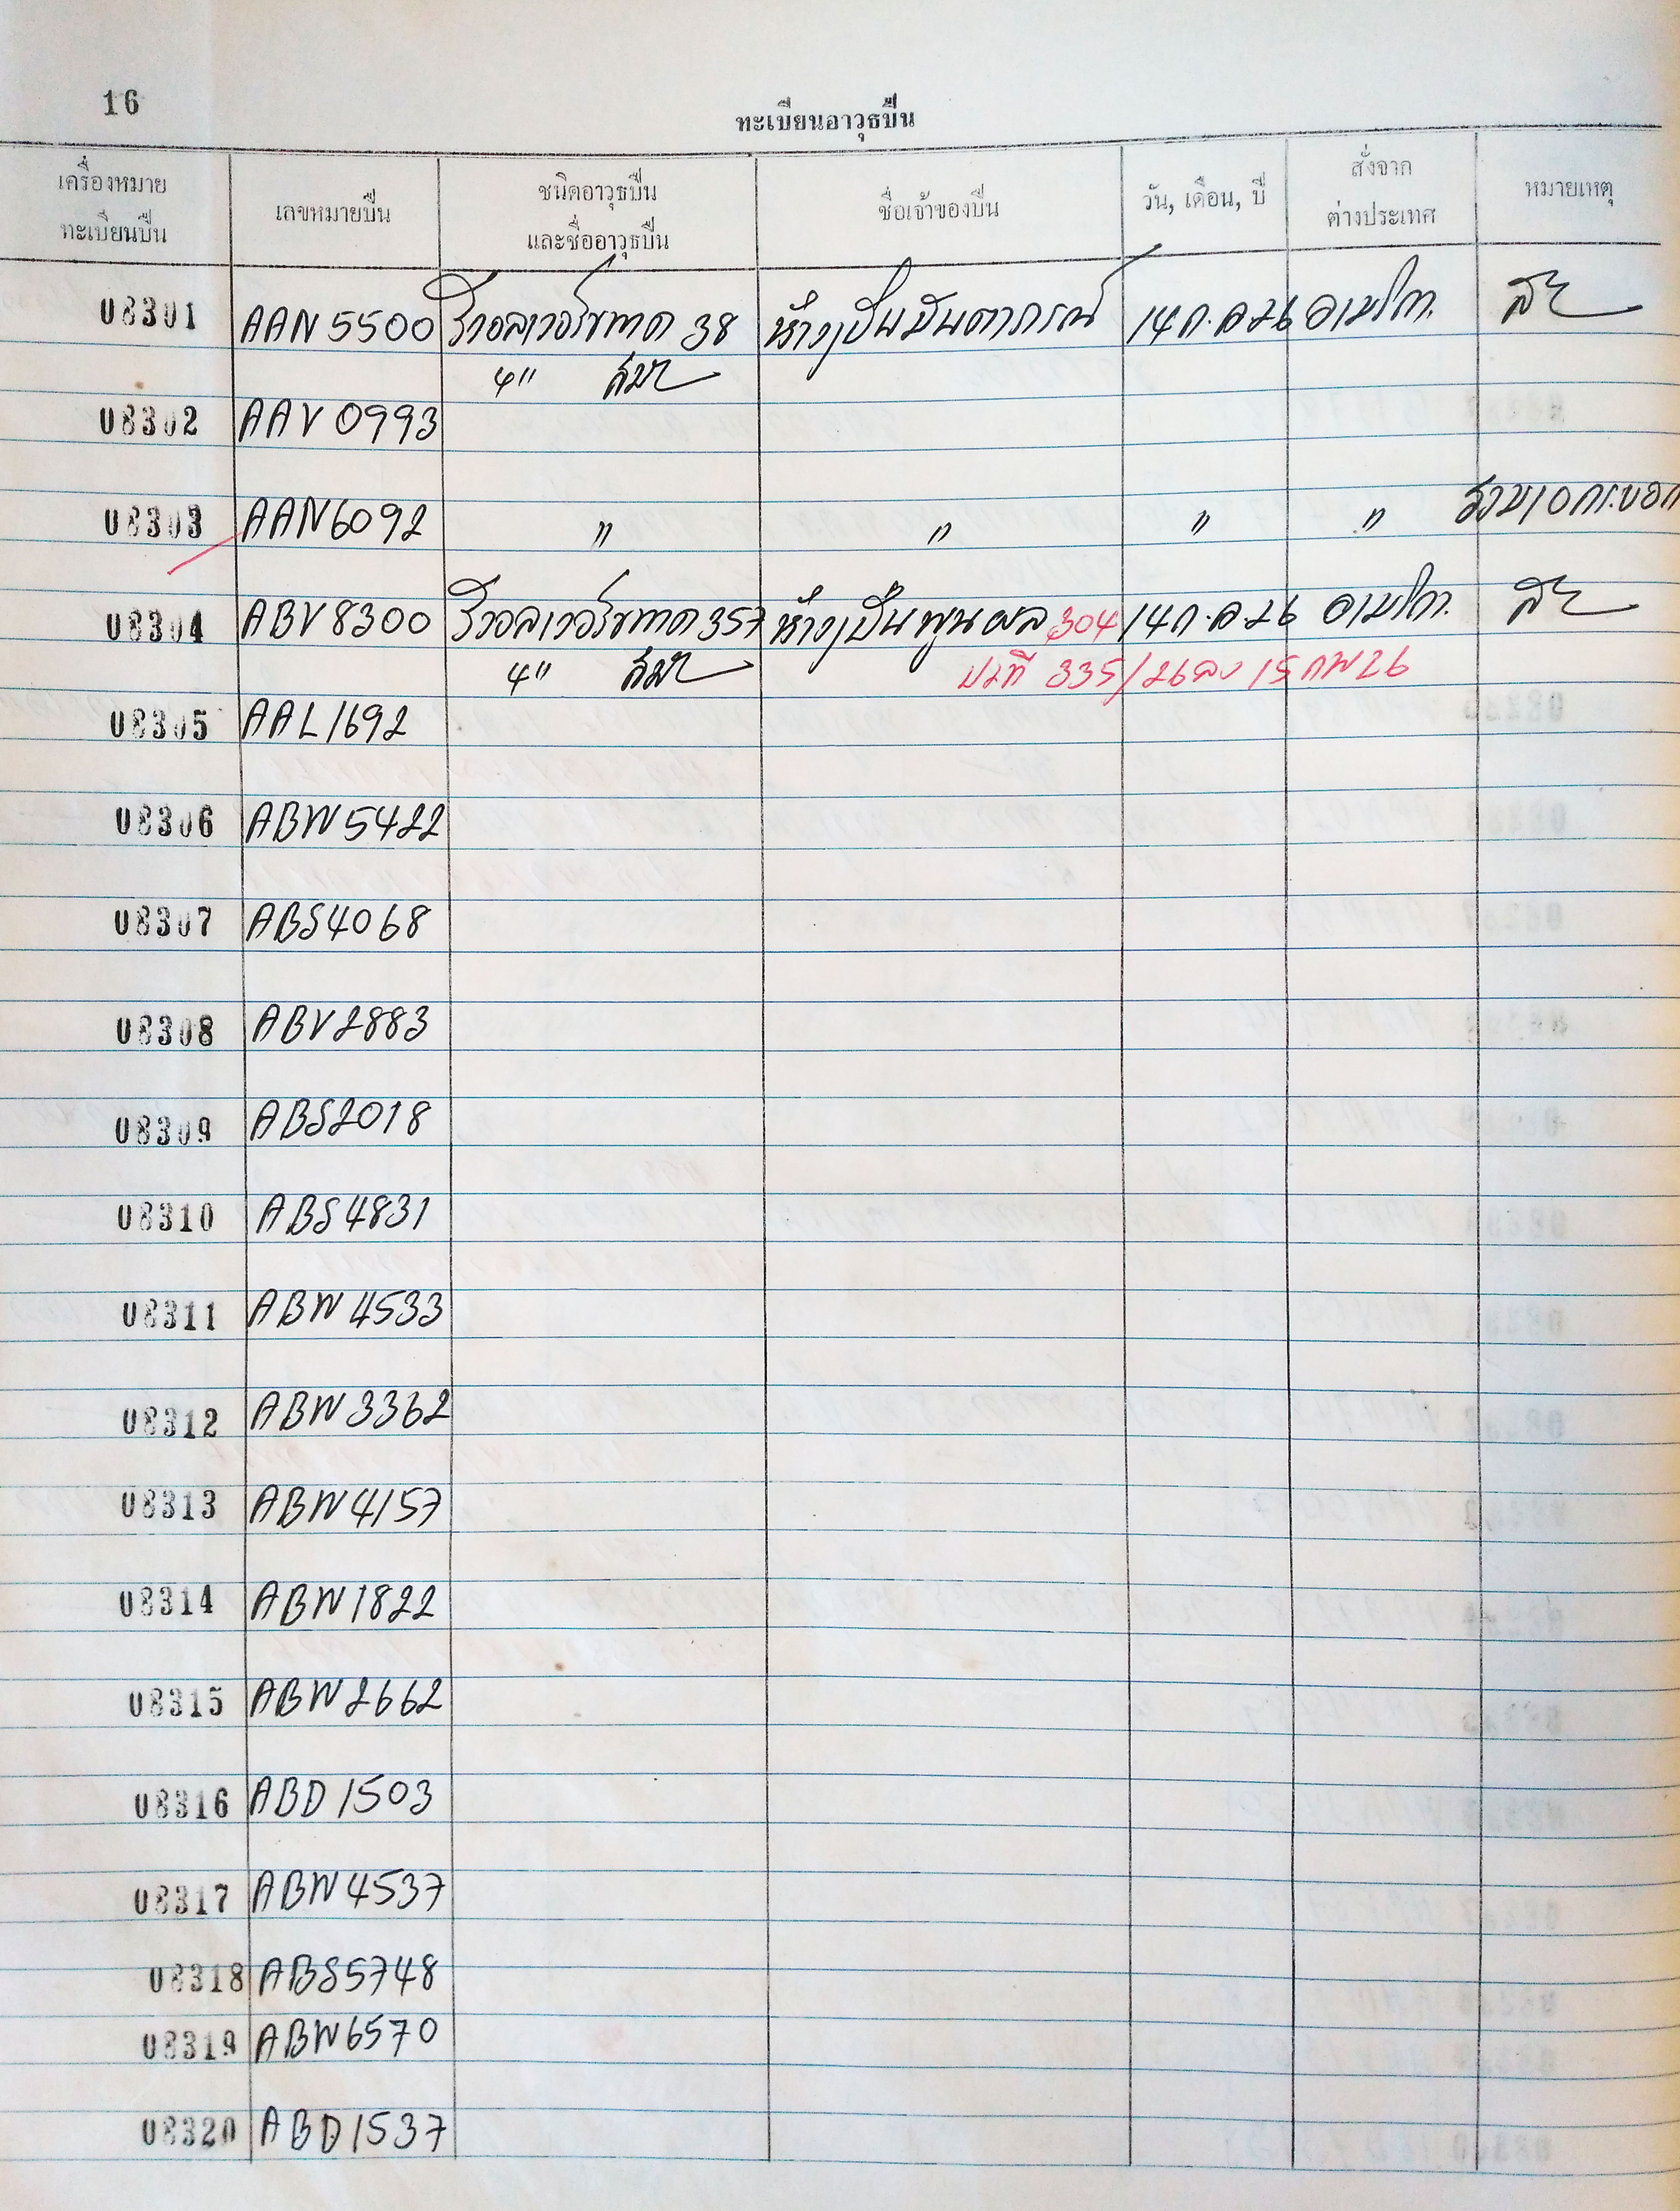 16
ทะเบียนอาวุธปืน
เครื่องหมาย ทะเบียนปืน เลขหมายปืน ชนิดอาวุธปืน และชื่ออาวุธปืน ชื่อเจ้าของปืน วัน, เดือน, ปี สั่งจาก ต่างประเทศ หมายเหตุ
08301 AAN 5500 รีวอลเวอร์ขนาด 38 ห้างปืนปืนดาภรณ์ 14 ก.ค 26 อเมริกา
4"
08302 AAV 0993
08303 AAN6092 " " " " รวม 10 กระบอก
08304 ABV 8300 รีวอลเวอร์ขนาด 357 ห้างปืนพูนผล 304 14 ก.ค 26 อเมริกา
4" ปมที่ 335/26 ลง 15 กพ 26
08305 AAL 1692
08306 ABW 5422
08307 ABS4068
08308 ABV2883
08309 ABS2018
08310 ABS4831
08311 ABW 4533
08312 ABW 3362
08313 ABW 4157
08314 ABW 1822
08315 ABW 2662
08316 ABD 1503
08317 ABW 4537
08318 ABS5748
08319 ABW6570
08320 ABD1537